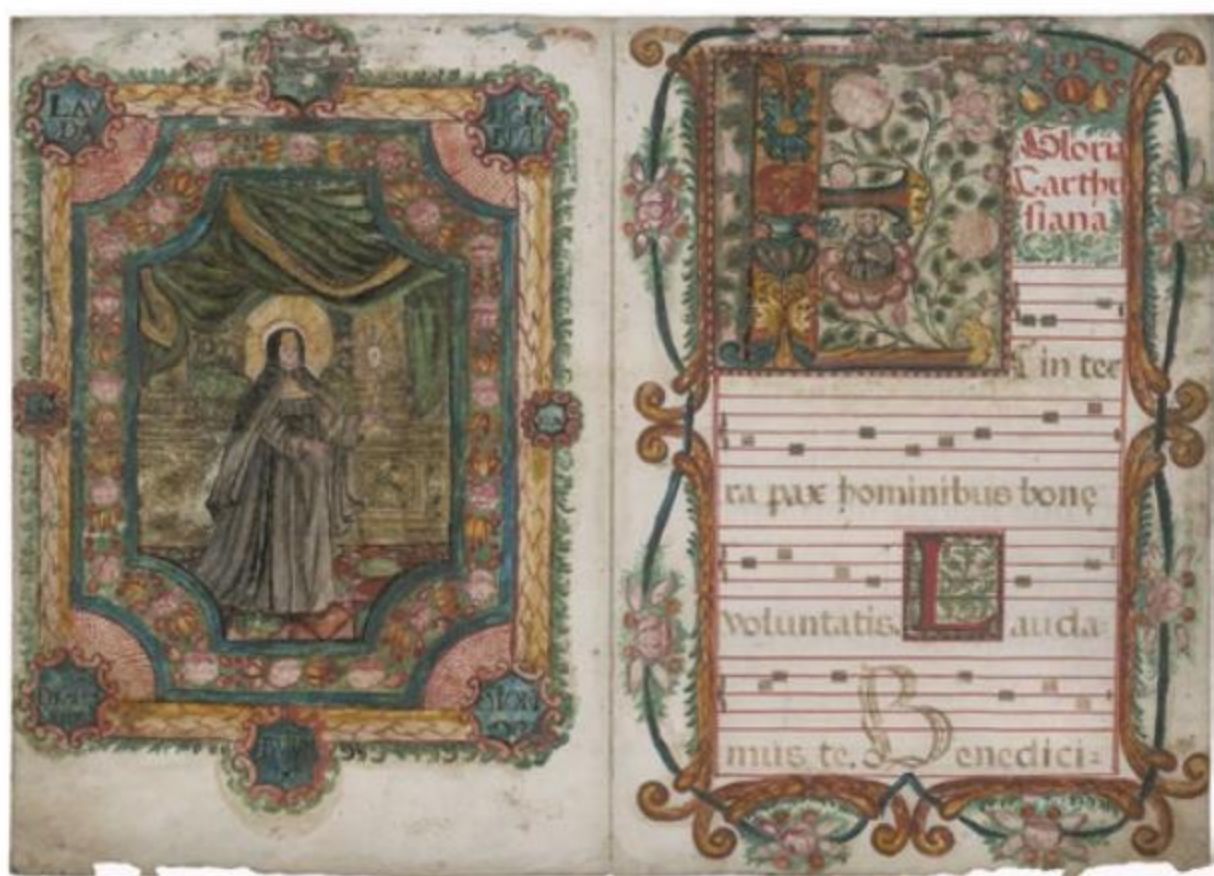 LAV
DA
Gloria
Carthu
siana
a in ter
ra pax hominibus bonę
voluntatis. L auda:
mus te. B enedici: